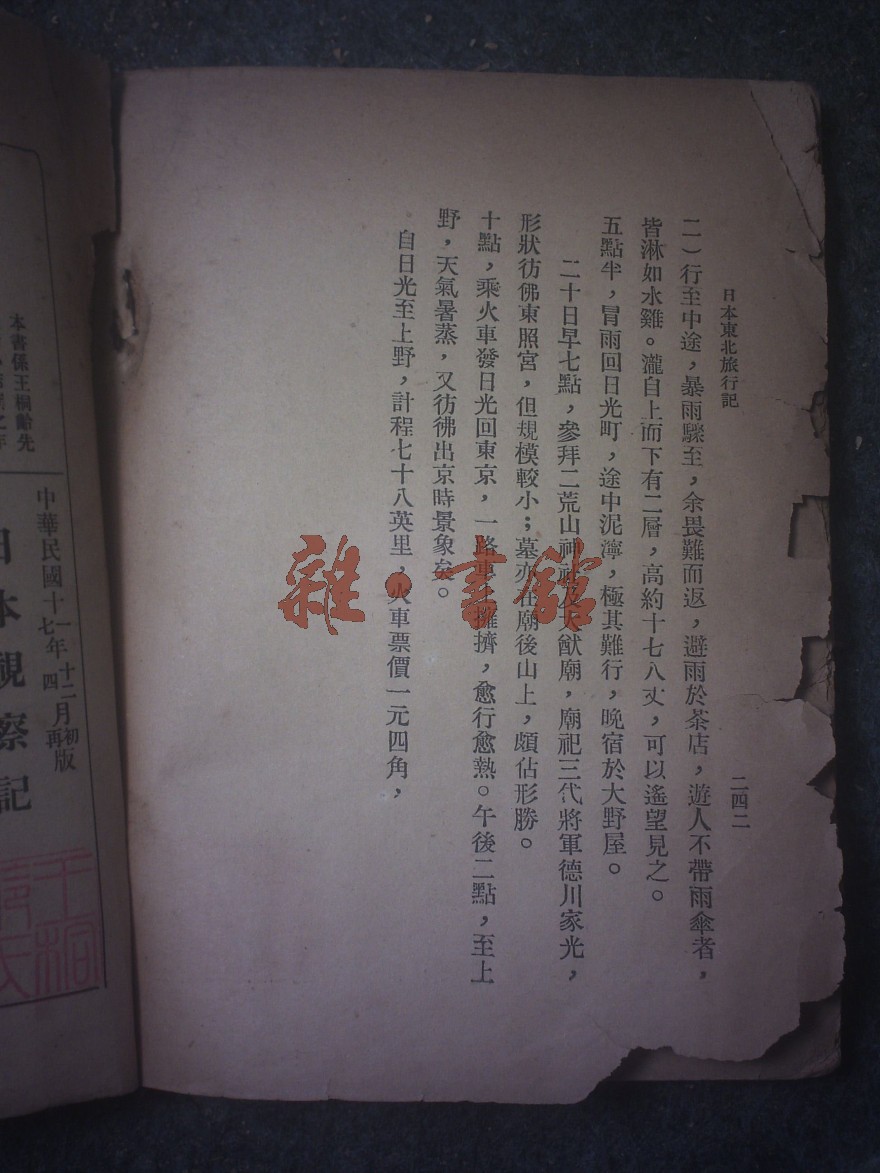 日本東北旅行記
二四二
二）行至中途，暴雨驟至，余畏難而返，避雨於茶店，遊人不帶雨傘者，
皆淋如水雞。瀧自上而下有二層，高約十七八丈，可以遙望見之。
五點半，冒雨回日光町，途中泥濘，極其難行，晚宿於大野屋。
二十日早七點，參拜二荒山神社及大猷廟，廟祀三代將軍德川家光，
形狀彷佛東照宮，但規模較小；墓亦在廟後山上，頗佔形勝。
十點，乘火車發日光回東京，一路車上擁擠，愈行愈熱。午後二點，至上
野，天氣暑蒸，又彷彿出京時景象矣。
自日光至上野，計程七十八英里，火車票價一元四角，
雜·書館
本書係王桐齡先
中華民國十七年十一月初版
四月再版
日本視察記